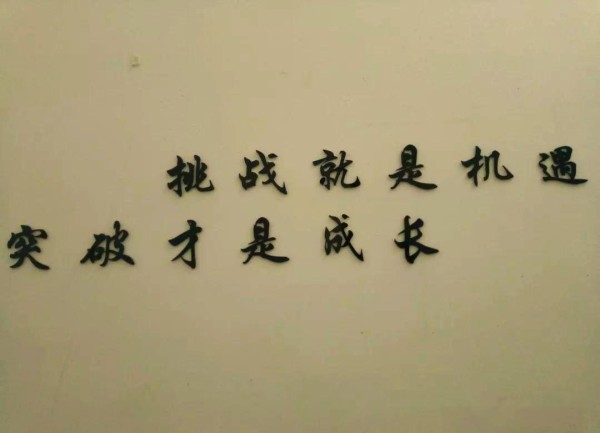 挑战就是机遇
突破才是成长